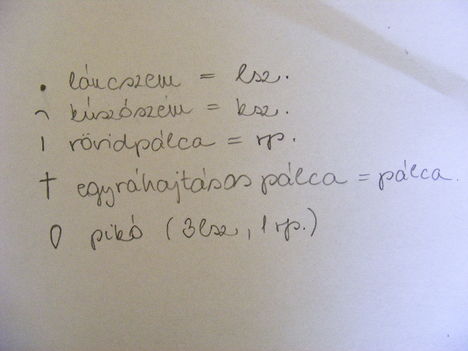 • láncszem = lsz.
⌒ kúszószem = ksz.
| rövidpálca = rp.
† egyráhajtásos pálca = pálca.
0 pikó (3lsz, 1 rp.)